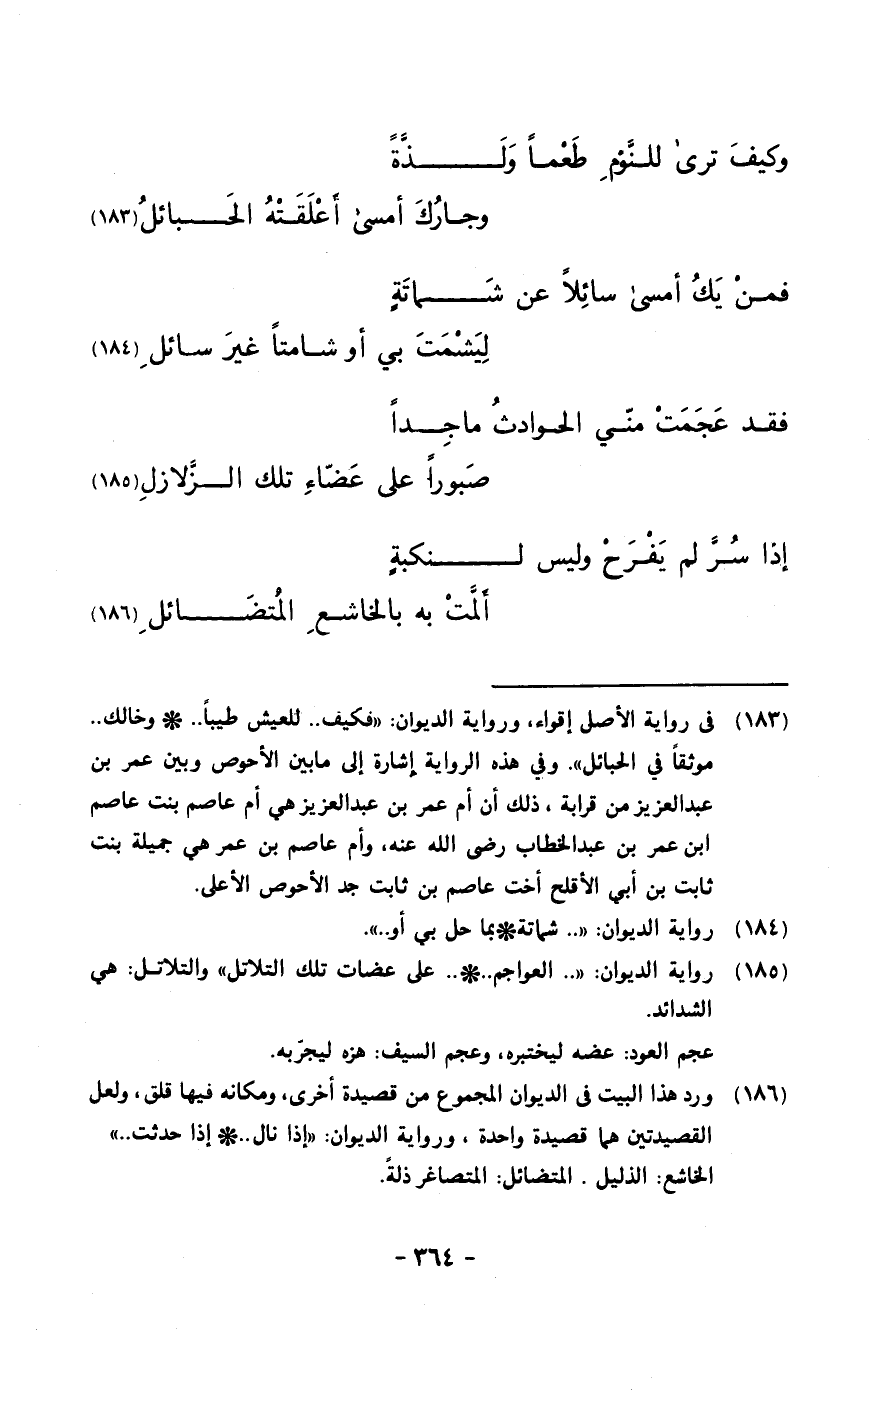 وكيفَ ترىٰ للنَّوْمِ طَعْماً وَلَـــــــــذَّةً
وجارُكَ أمسىٰ أعْلَقَتْهُ الحَـــــبائلُ(١٨٣)
فمنْ يَكُ أمسىٰ سائِلاً عن شَـــــماتَةٍ
لِيَشْمَتَ بي أو شامتاً غيرَ سائلِ(١٨٤)
فقد عَجَمَتْ منّي الحوادثُ ماجِداً
صَبوراً على عَضّاءِ تلك الـــزَّلازلِ(١٨٥)
إذا سُرَّ لم يَفْرَحْ وليس لـــــــــنكبةٍ
ألمَّتْ به بالخاشعِ المُتضَــــــــائلِ(١٨٦)
(١٨٣) فى رواية الأصل إقواء، ورواية الديوان: «فكيف.. للعيش طيباً.. * وخالك..
موثقاً في الحبائل». وفي هذه الرواية إشارة إلى مابين الأحوص وبين عمر بن
عبدالعزيز من قرابة ، ذلك أن أم عمر بن عبدالعزيز هي أم عاصم بنت عاصم
ابن عمر بن عبدالخطاب رضى الله عنه، وأم عاصم بن عمر هي جميلة بنت
ثابت بن أبي الأقلح أخت عاصم بن ثابت جد الأحوص الأعلى.
(١٨٤) رواية الديوان: «.. شماتة*بما حل بي أو..».
(١٨٥) رواية الديوان: «.. العواجم..*.. على عضات تلك التلاتل» والتلاتل: هي
الشدائد.
عجم العود: عضه ليختبره، وعجم السيف: هزه ليجرّبه.
(١٨٦) ورد هذا البيت فى الديوان المجموع من قصيدة أخرى، ومكانه فيها قلق، ولعل
القصيدتين هما قصيدة واحدة ، ورواية الديوان: «إذا نال..* إذا حدثت..»
الخاشع: الذليل . المتضائل: المتصاغر ذلةً.
- ٣٦٤ -